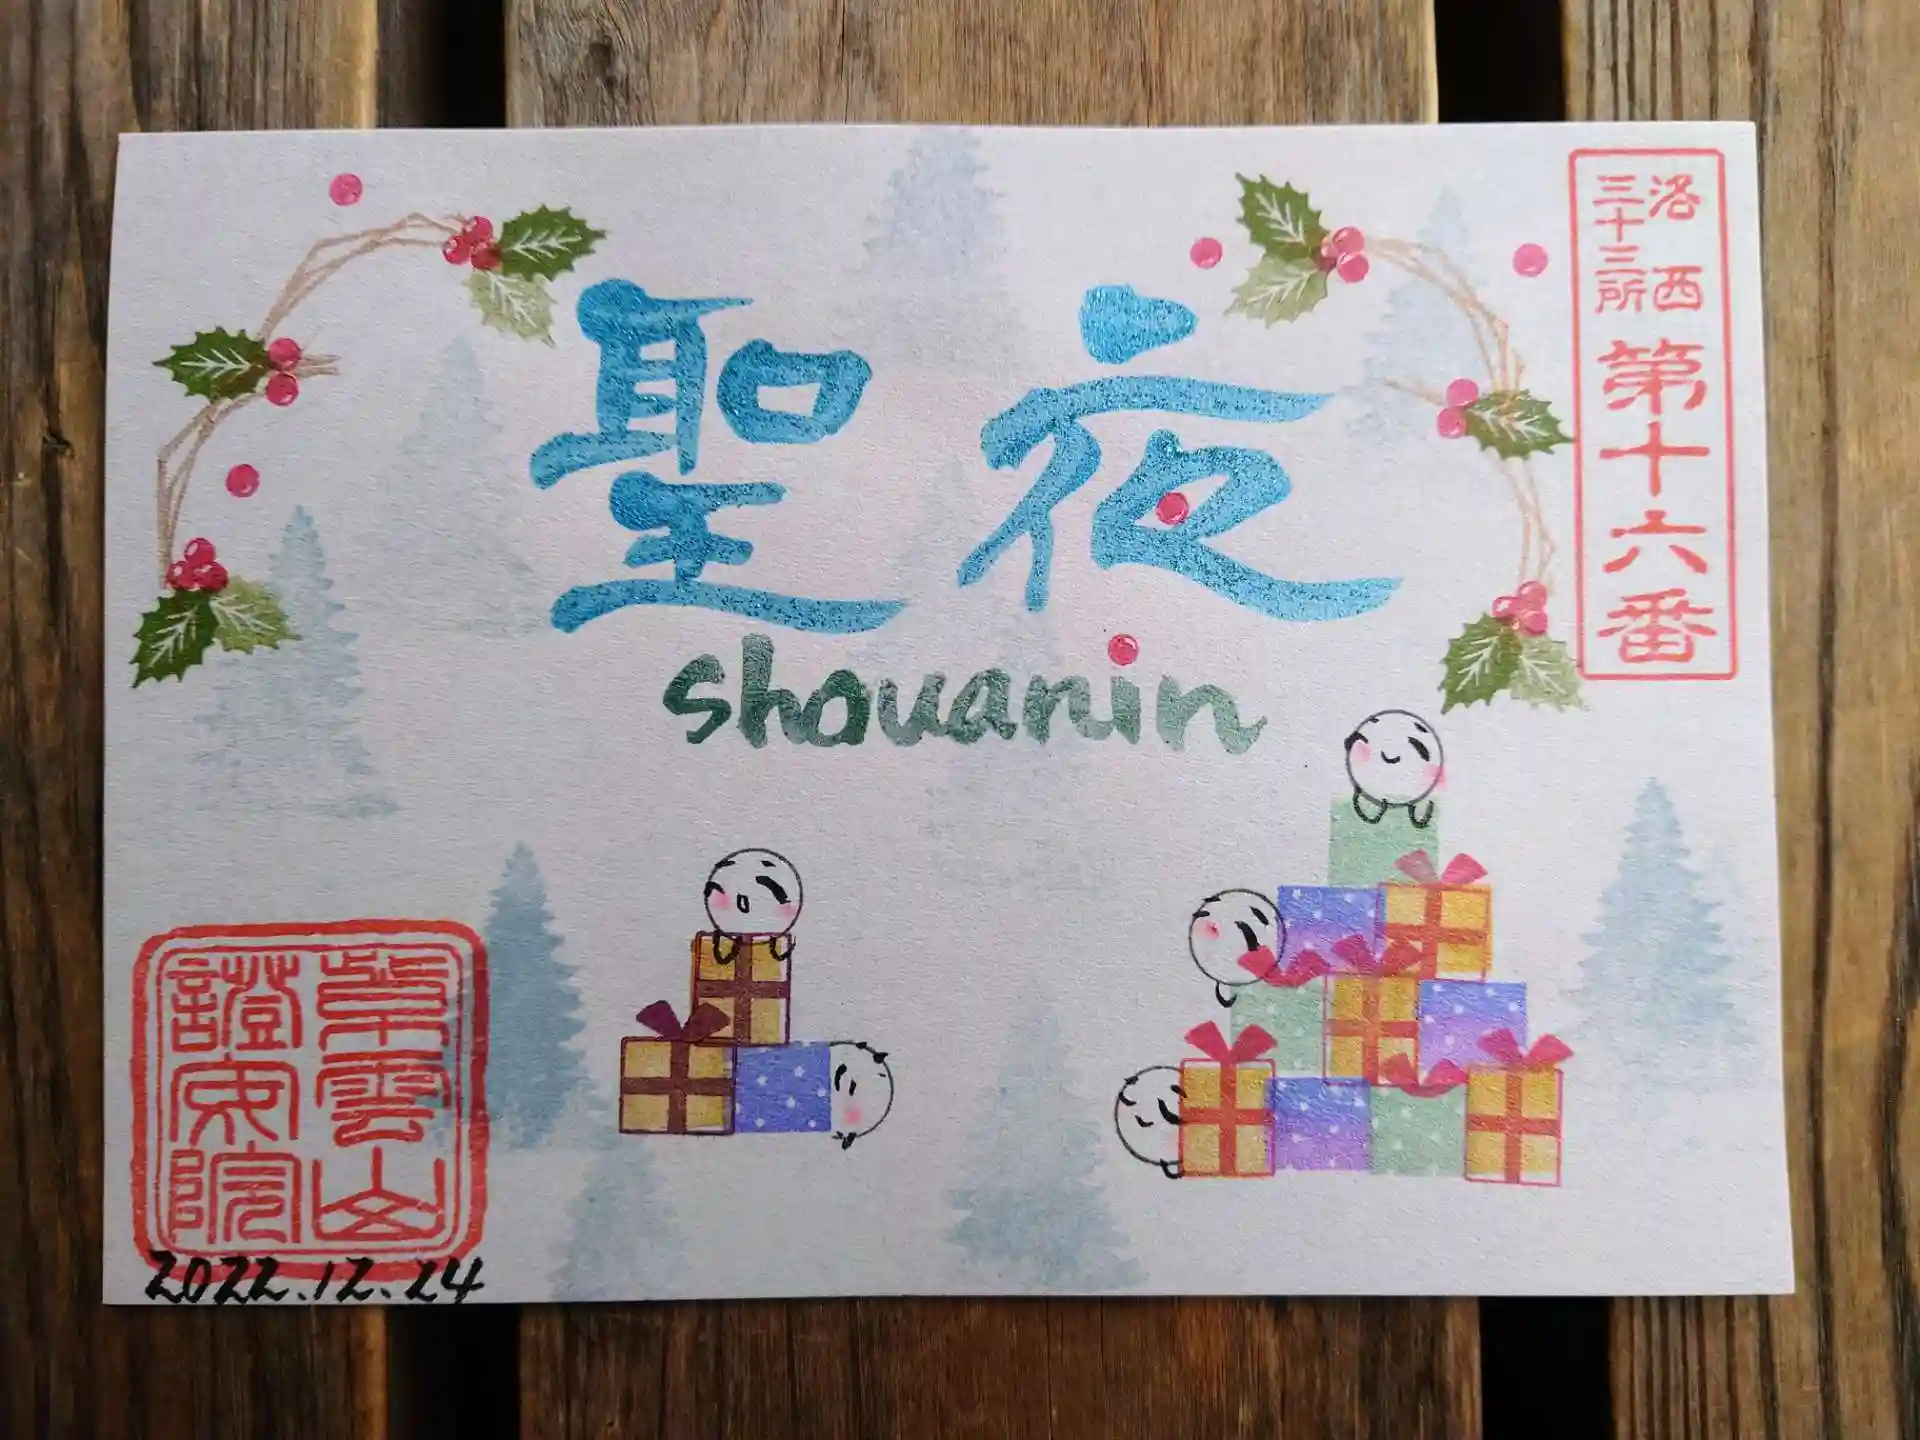 聖夜
shouanin
洛西
三十三所
第十六番
紫雲山
證安院
2022.12.24